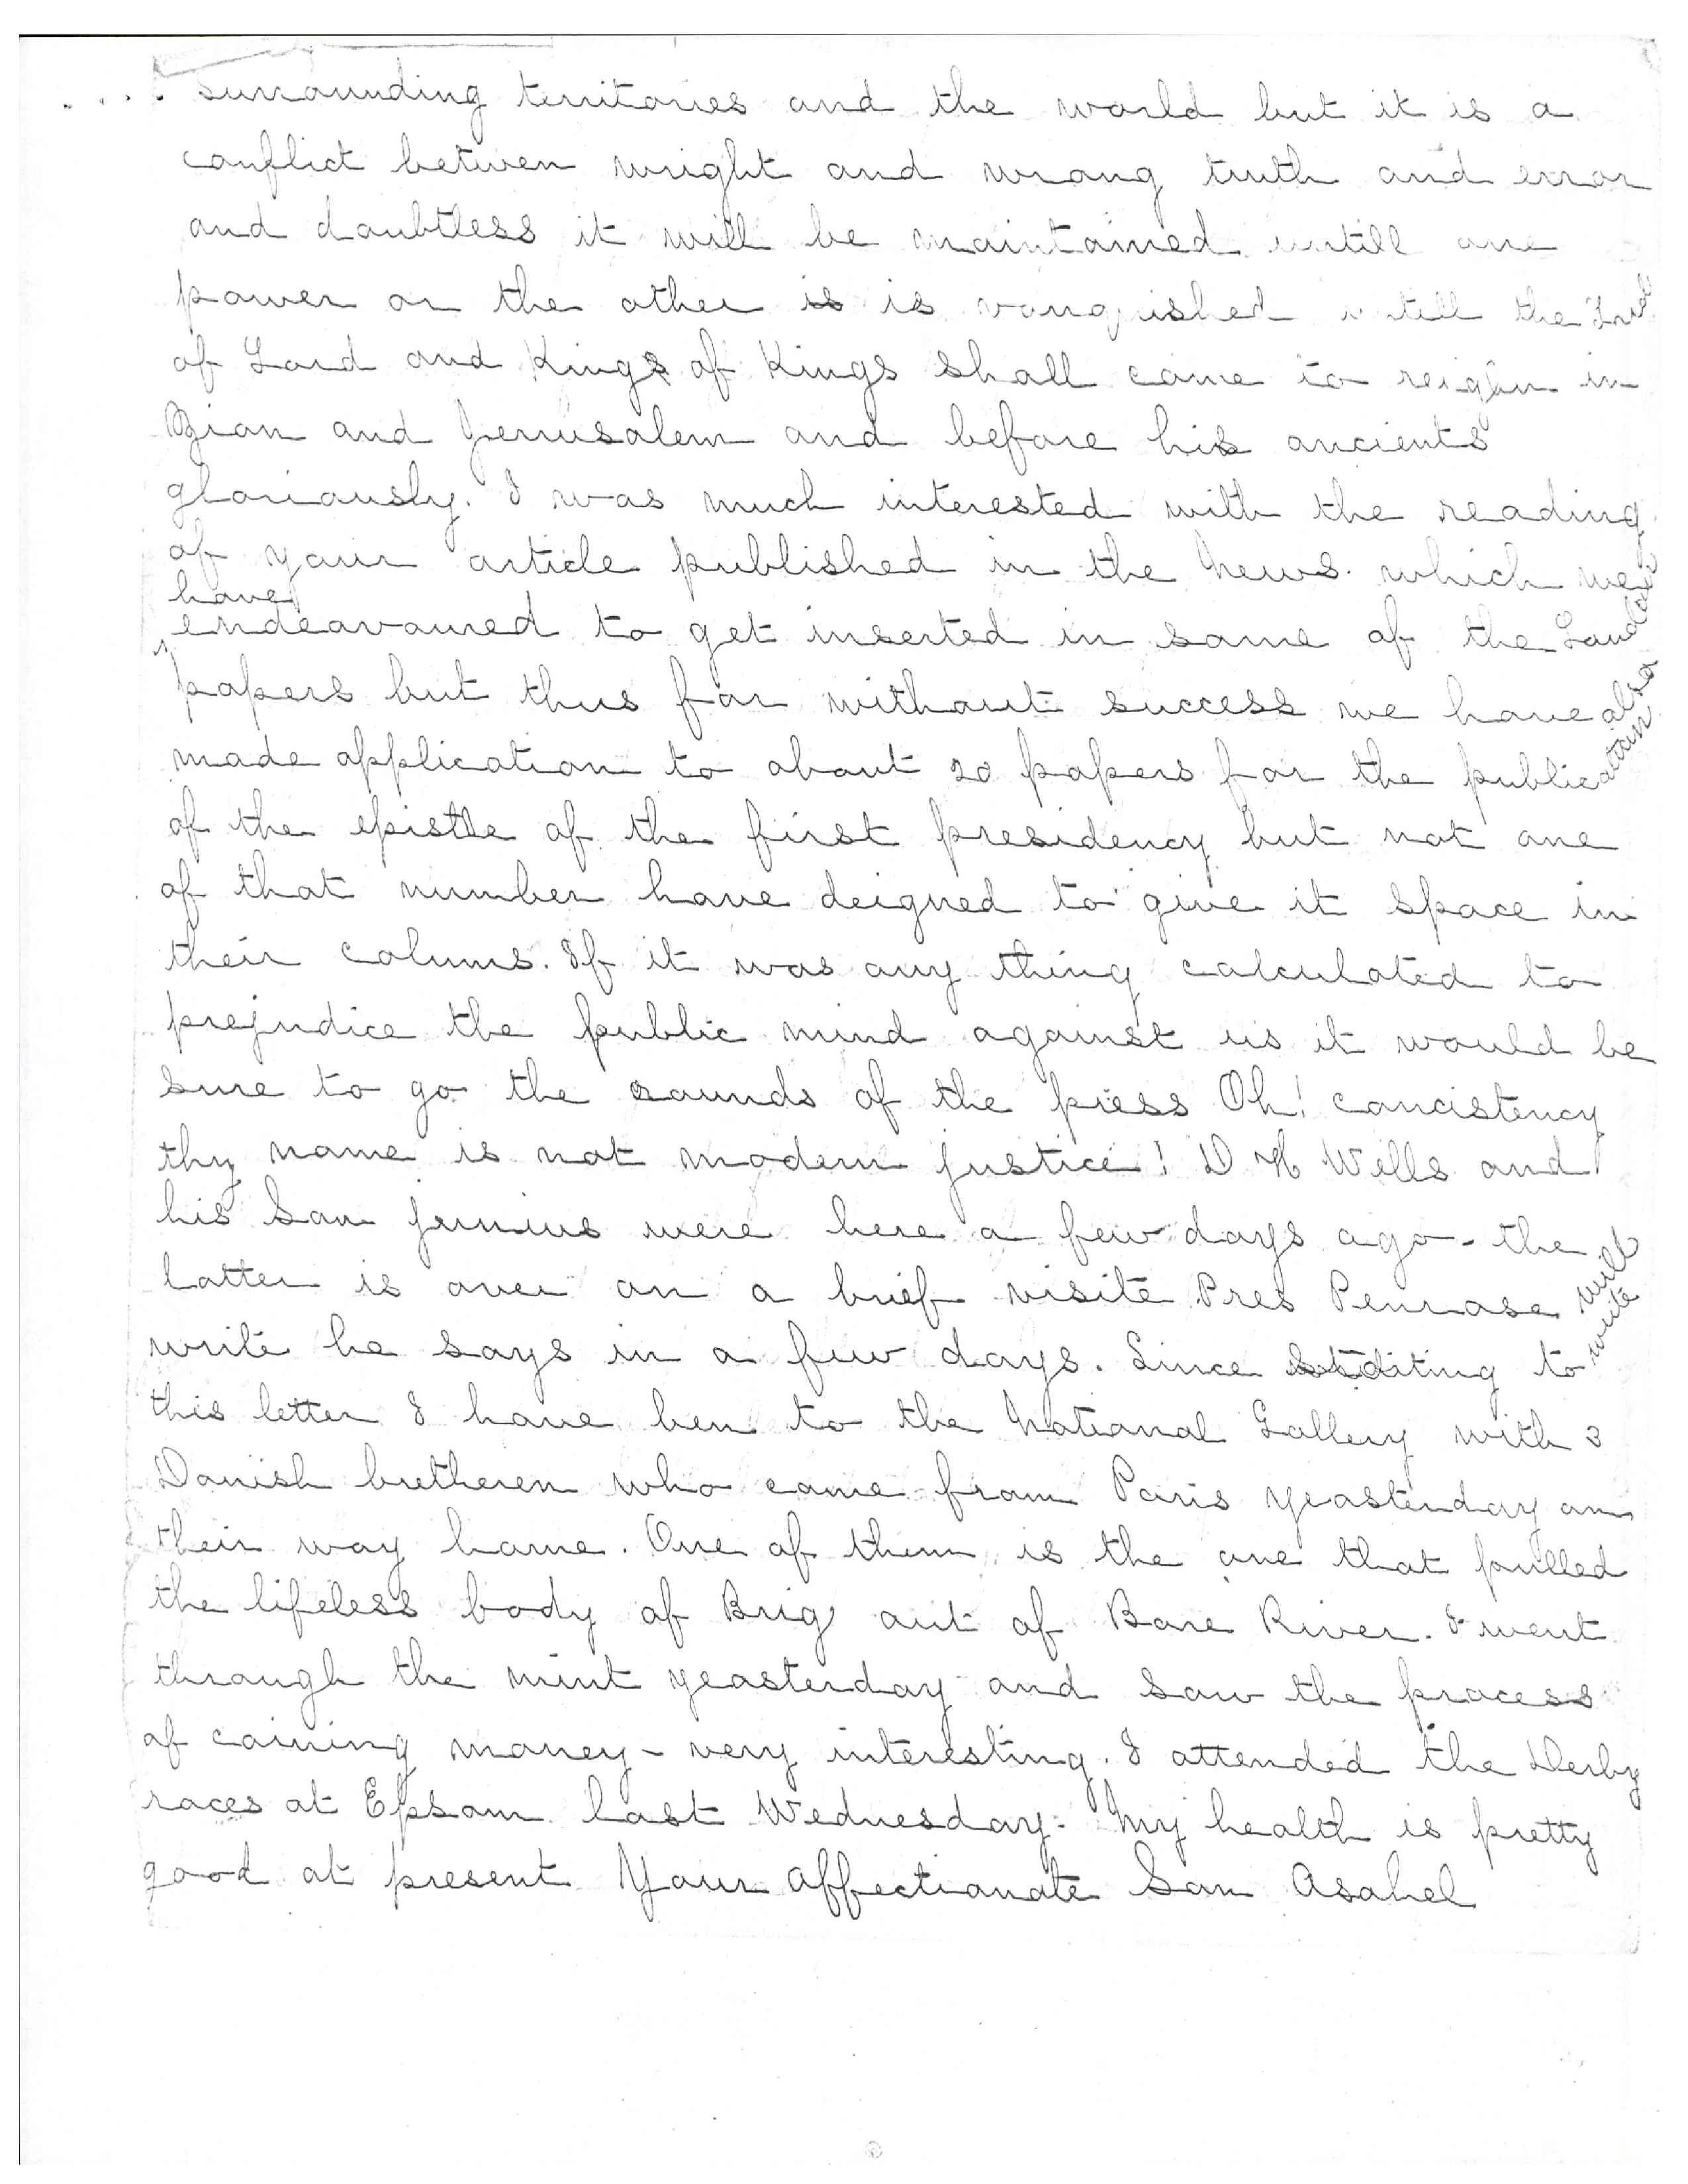 .... surrounding territories and the world but it is a
conflict betwen wright and wrong truth and error
and doubtless it will be maintained untill one
power or the other is is vanquished untill the
of Lord and Kings of Kings shall come to reighn in
Zion and Jerrusalem and before his ancients
gloriously. I was much interested with the reading
of your article published in the News. which we
have
endeavoured to get inserted in some of the London
papers but thus far without success we have also
made application to about 20 papers for the publication
of the epistle of the first presidency but not one
of that number have deigned to give it space in
their colums. If it was any thing calculated to
prejudice the public mind against us it would be
sure to go the rounds of the press Oh! concistency
thy name is not modern justice! D H Wells and
his Son Junius were here a few days ago - the
latter is over on a brief visite Pres Penrose will
write
write he says in a few days. Since to
this letter I have ben to the National Gallery with 3
Danish bretheren who came from Paris yeasterday on
their way home. One of them is the one that pulled
the lifeless body of Brig out of Bare River. I went
through the mint yeasterday and saw the process
of coining money - very interesting. I attended the Derby
races at Epsom last Wednesday. My health is pretty
good at present Your affectionate Son Asahel